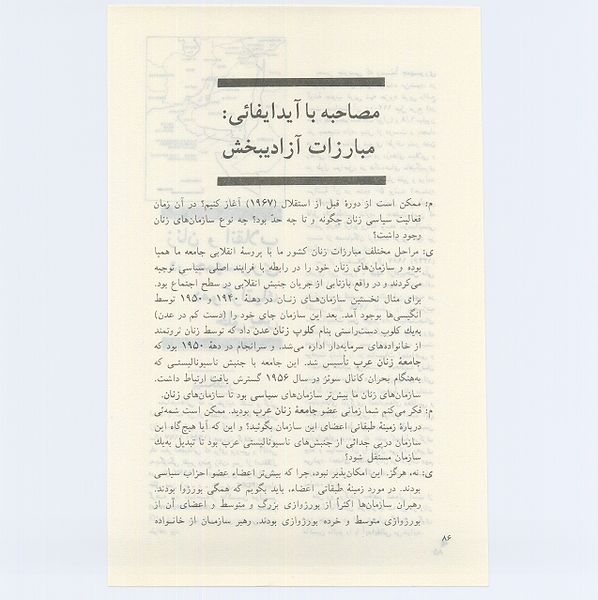 مصاحبه با آیدا یفائی:
مبارزات آزادیبخش
م: ممکن است از دورهٔ قبل از استقلال (۱۹۶۷) آغاز کنیم؟ در آن زمان
فعالیت سیاسی زنان چگونه و تا چه حد بود؟ چه نوع سازمان‌های زنان
وجود داشت؟
ی: مراحل مختلف مبارزات زنان کشور ما با پروسهٔ انقلابی جامعه ما همپا
بوده و سازمان‌های زنان خود را در رابطه با فرایند اصلی سیاسی توجیه
می‌کردند و در واقع بازتابی از جریان جنبش انقلابی در سطح اجتماع بود.
برای مثال نخستین سازمان‌های زنان در دههٔ ۱۹۴۰ و ۱۹۵۰ توسط
انگیسی‌ها بوجود آمد. بعد این سازمان جای خود را (دست کم در عدن)
به‌یك کلوب دست‌راستی بنام کلوپ زنان عدن داد که توسط زنان ثروتمند
از خانواده‌های سرمایه‌دار اداره می‌شد. و سرانجام در دههٔ ۱۹۵۰ بود که
جامعهٔ زنان عرب تأسیس شد. این جامعه با جنبش ناسیونالیستی که
به‌هنگام بحران کانال سوئز در سال ۱۹۵۶ گسترش یافت ارتباط داشت.
سازمان‌های زنان ما بیش‌تر سازمان‌های سیاسی بود تا سازمان‌های زنان.
م: فکر می‌کنم شما زمانی عضو جامعهٔ زنان عرب بودید. ممکن است شمه‌ئی
دربارهٔ زمینهٔ طبقاتی اعضای این سازمان بگوئید؟ و این که آیا هیچ‌گاه این
سازمان درپی جدائی از جنبش‌های ناسیونالیستی عرب بود تا تبدیل به‌یك
سازمان مستقل شود؟
ی: نه، هرگز. این امکان‌پذیر نبود، چرا که بیش‌تر اعضاء عضو احزاب سیاسی
بودند. در مورد زمینهٔ طبقاتی اعضاء، باید بگویم که همگی بورژوا بودند.
رهبران سازمان‌ها اکثراً از بورژوازی بزرگ و متوسط و اعضای آن از
بورژوازی متوسط و خرده بورژوازی بودند. رهبر سازمان از خانواده
۸۶